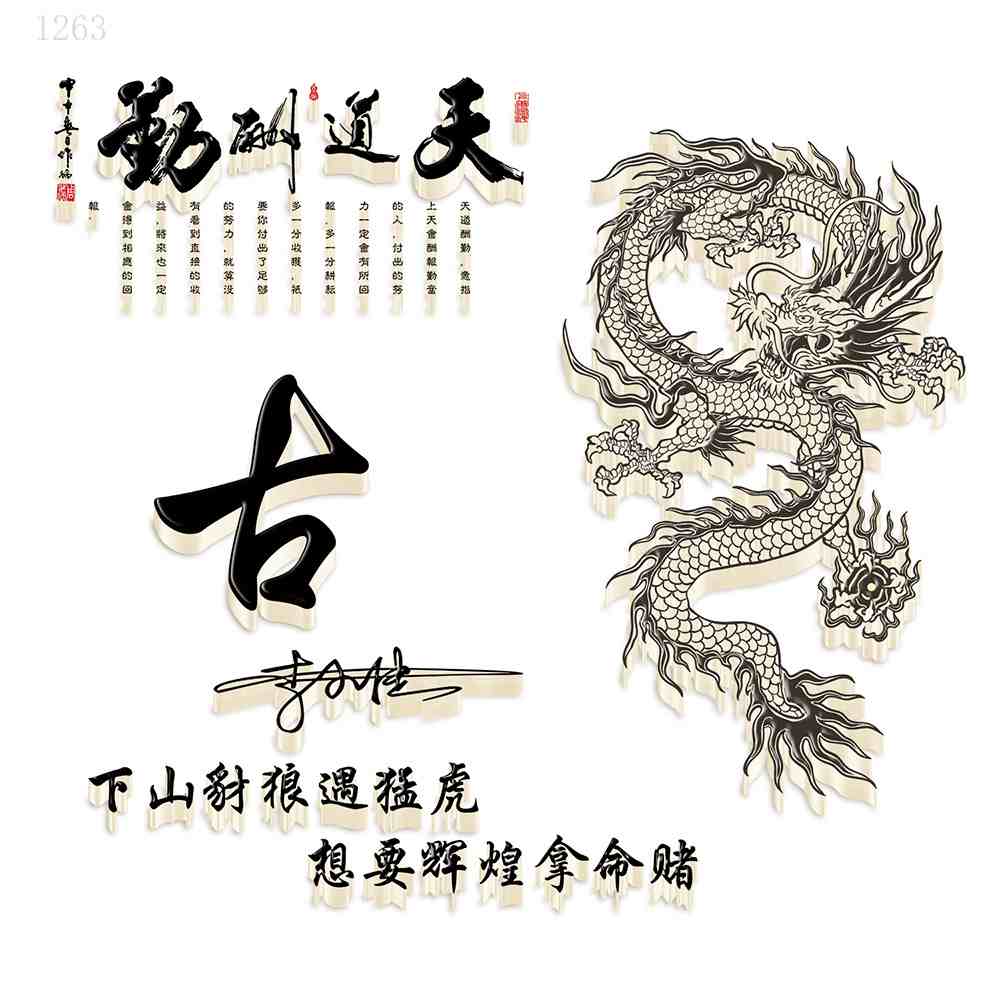 1263
天道酬勤
天道酬勤，意指
上天會酬報勤奮
的人，付出的努
力一定會有所回
報，多一分耕耘
多一分收穫，祇
要你付出了足够
的努力，就算没
有看到直接的收
益，將來也一定
會得到相應的回
報．
古
下山豺狼遇猛虎
想要辉煌拿命赌